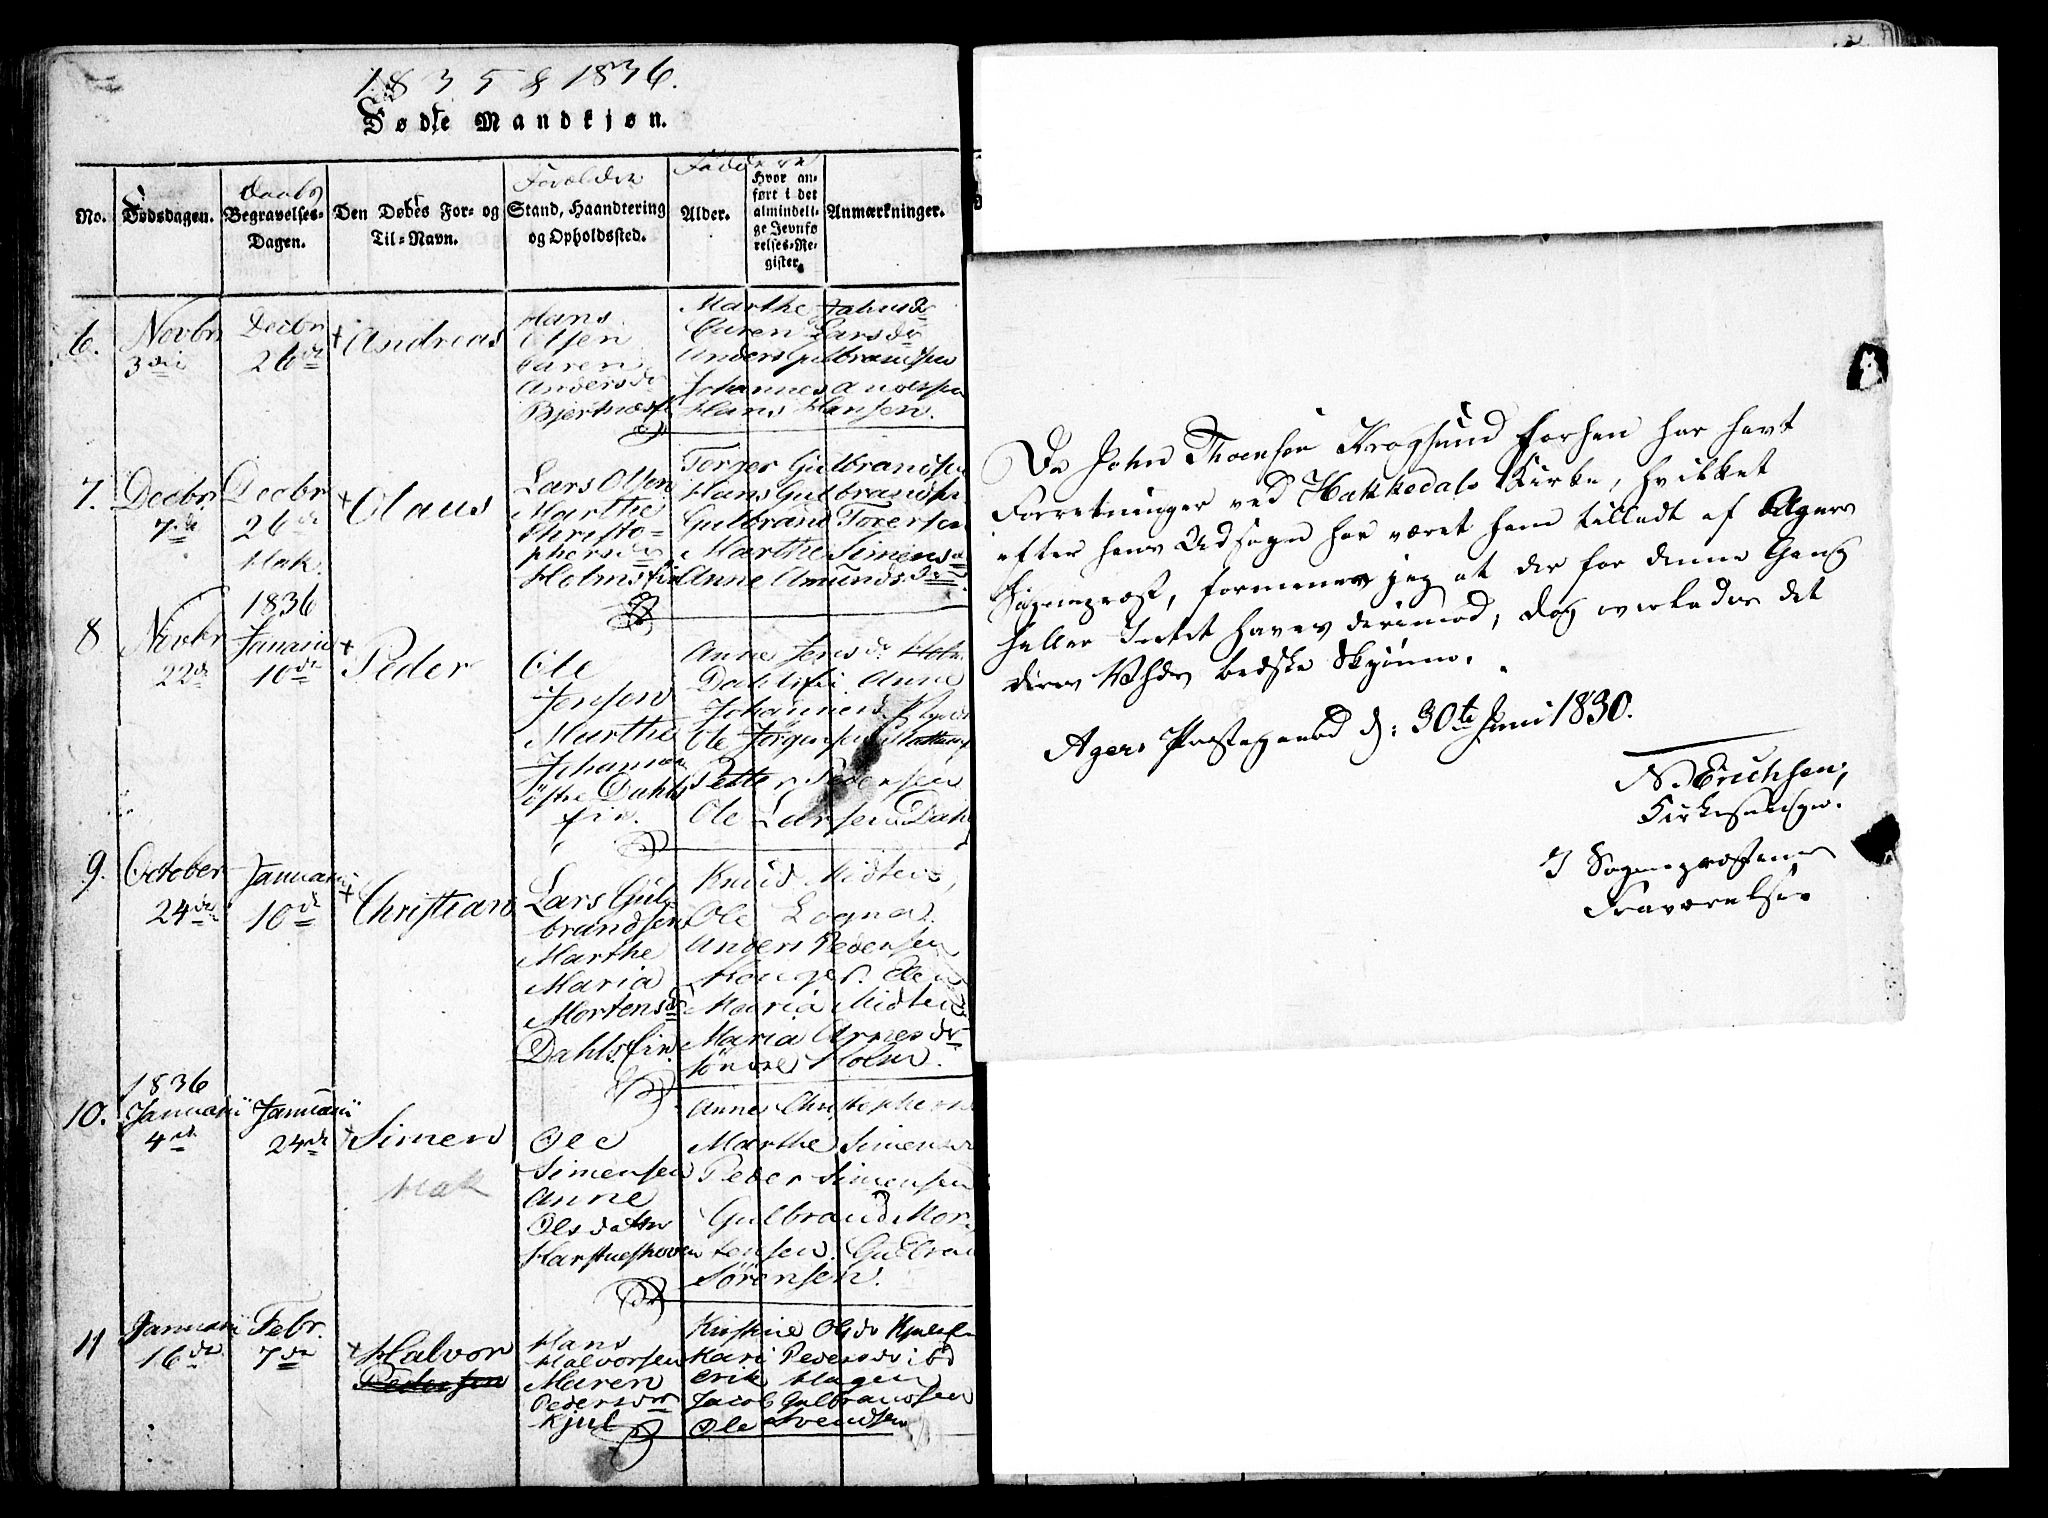 1835 & 1836.
Fødte Mandkjøn.
No. Dødsdagen. Daabs Begravelses-Dagen. Den Døbes For- og Til-Navn. Forældre Stand, Haandtering og Opholdssted. Fadder Alder. Hvor anført i det almindelige Jevnførelses-Register. Anmærkninger.
6. Novbr 3die
Decbr 26de
+ Andreas
Hans
Olsen
Karen
Andersdr
Marthe
Caren Larsdr
Anders Gulbrandsen
Johannes Andersen
Hans Hansen.
7. Decbr 7de
Decbr 26de
Hak.
+ Olaus
Lars Olsen
Marthe
Christo=
phersdr
Holms Eie
Gulbrandsen
Hans Gulbrandsen
Gulbrand Torersen
Marthe Simensd
Anne Amundsdr
8 Novbr 22de
1836
Januarii 10de
+ Peder
Ole
Jensen
Marthe
Johannesdr
Dahls
Eie.
Anne Jensdr Holm
Dahlseie Anne
Johannesd.
Ole Jørgensen
Petter Pedersen
Ole Larsen Dahl
9. October 24de
Januarii 10de
+ Christian
Lars Gul=
brandsen
Marthe
Maria
Mortensdr
Dahls Eie.
Knud
Ole
Anders Pedersen
Maria
Maria Arnesdr
søndre Holm.
10. 1836
Januarii 4de
Januarii 24de
+ Simen
Hak
Ole
Simensen
Anne
Olsdatter
Anne Christophersd
Marthe Simensdr
Peder Simensen
Gulbrand Mor=
tensen. Gulbran
Sörensen.
11 Januarii 16de
Febr. 7de
+ Halvor
Pedersen
Hans
Halvorsen
Maren
Pedersdr
Kjul
Kristine Olsdr
Kari Pedersdr ibd
Erik Hagen
Jacob Gulbrandsen
Ole Svendsen
Da John Thoensen Krogsund forhen har havt
Forretninger ved Hakkedals Kirke, hvilket
efter hans Udsagn har været ham tilladt af Agers
Sognepræst, formener jeg at der for denne Gang
heller Intet haves derimod, dog overlades det
deres bedste Skjønne.
Agers Præstegaard d: 30te Juni 1830.
N. Erichsen,
Kirkesanger.
I Sognepræstens
Fraværelse